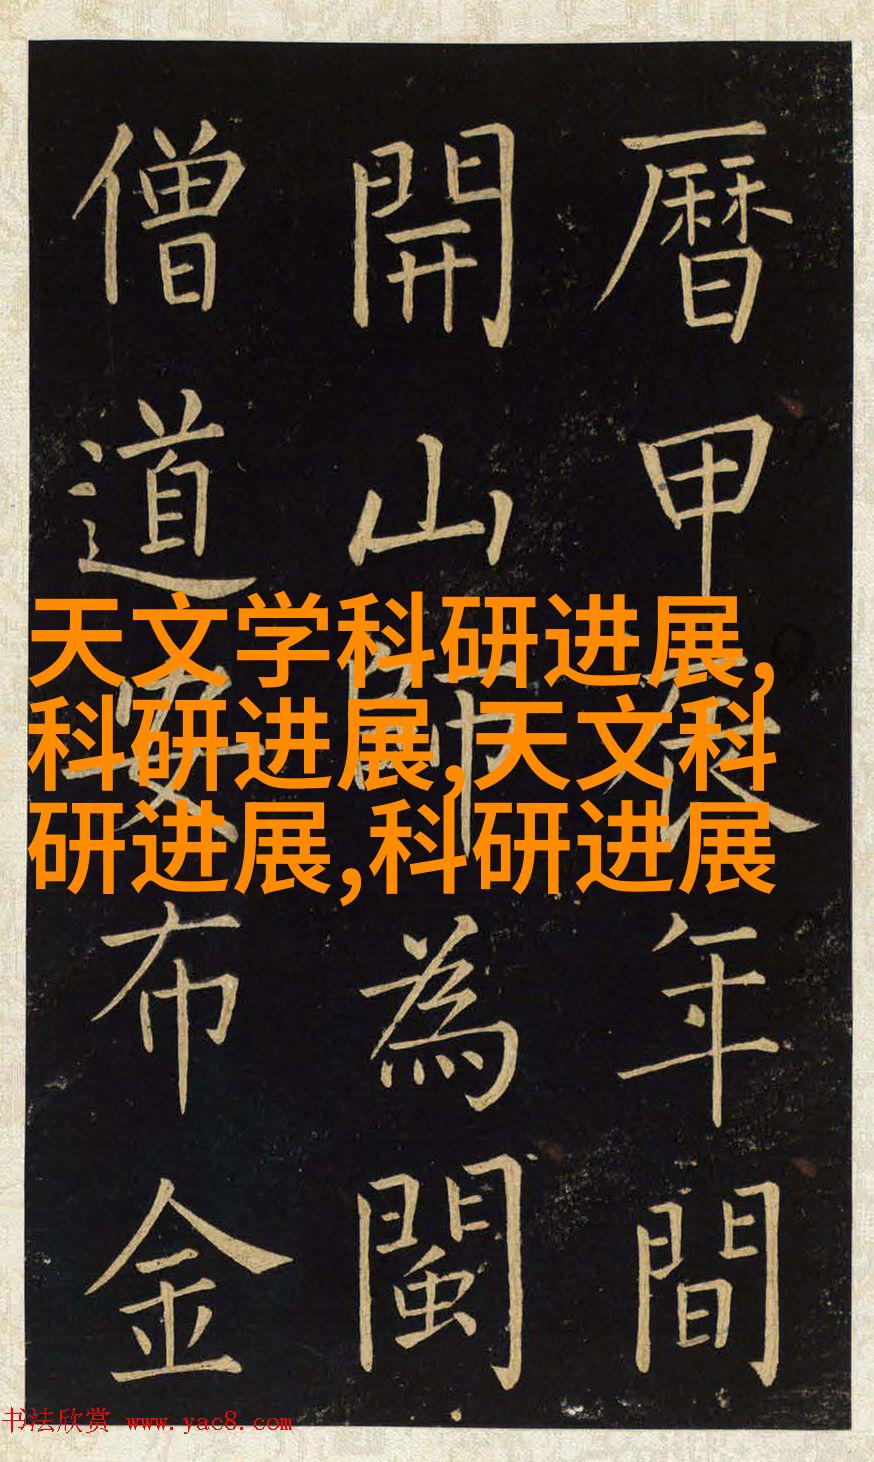 曆甲辰年間
開山師為閩
僧道安布金
天文学科研进展,
科研进展,天文科
研进展,科研进展
书法欣赏 www.yac8.com